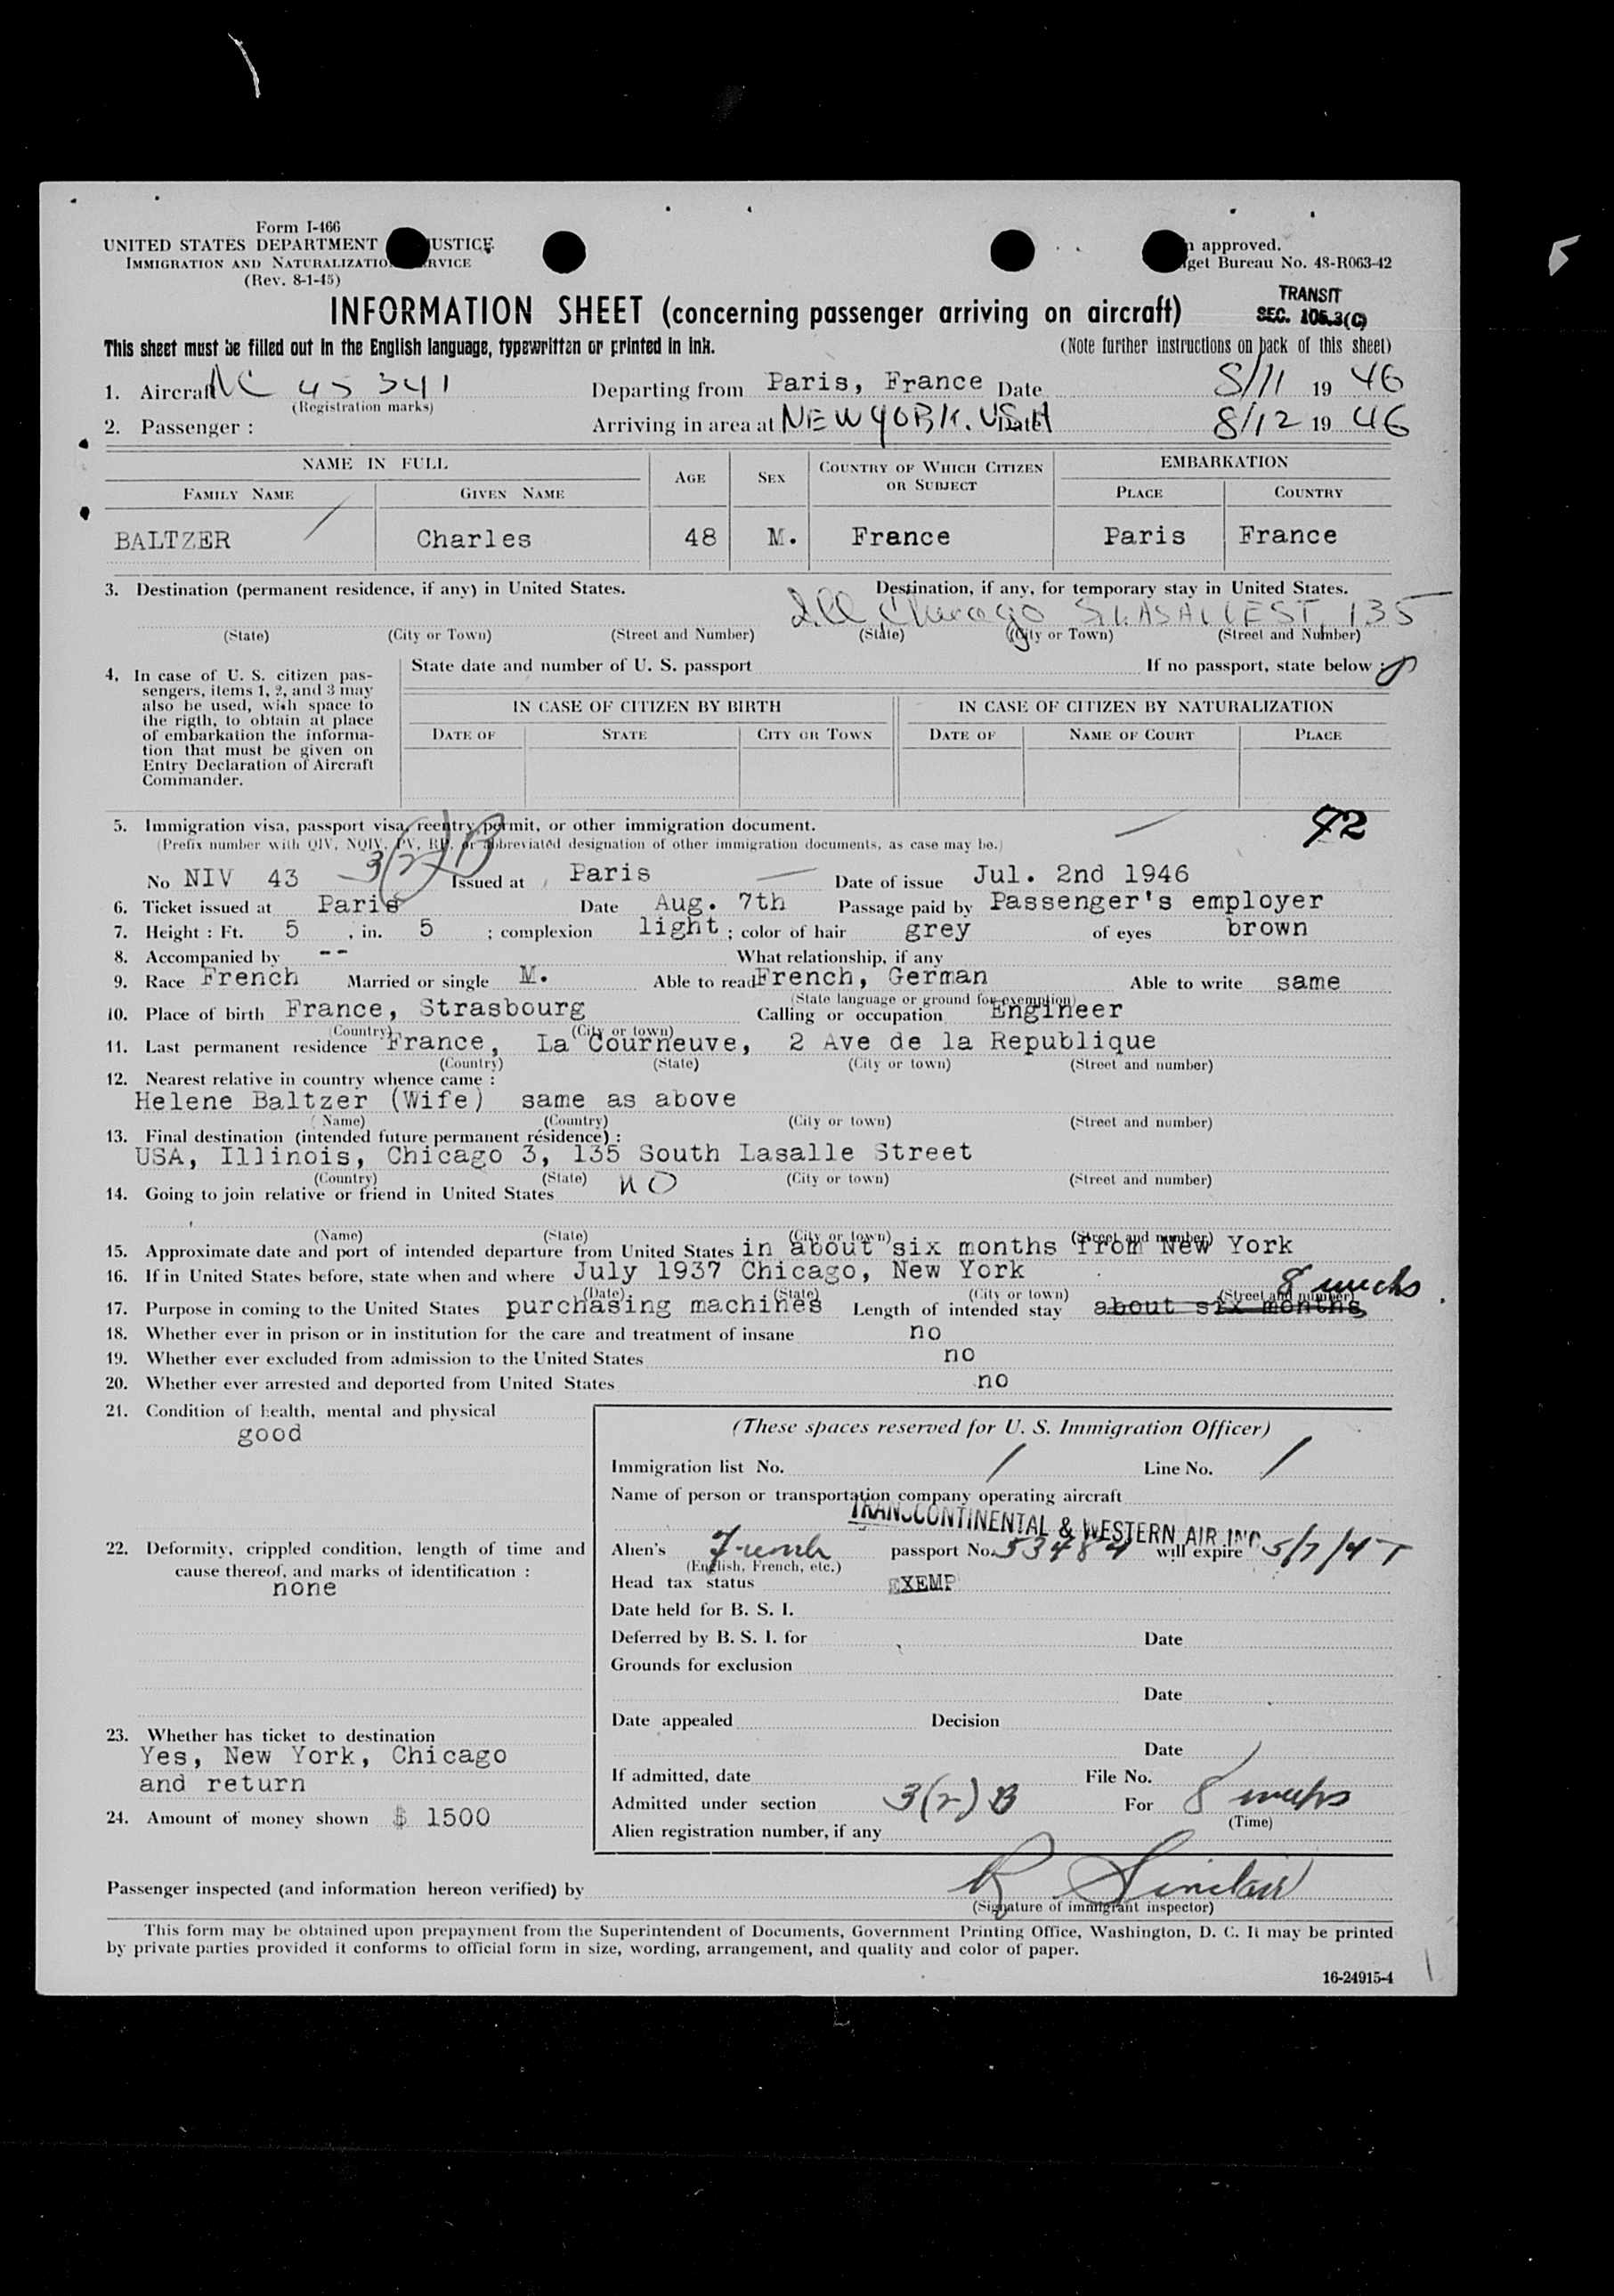 Form I-466
UNITED STATES DEPARTMENT USTICE
IMMIGRATION AND NATURALIZATIO RVICE
(Rev. 8-1-45)
approved.
get Bureau No. 48-R063-42
INFORMATION SHEET (concerning passenger arriving on aircraft)
TRANSIT
SEC. 105.3(C)
This sheet must be filled out in the English language, typewritten or printed in ink. (Note further instructions on back of this sheet)
1. Aircraft NC 45341 Departing from Paris, France Date 8/11 19 46
(Registration marks)
2. Passenger : Arriving in area at NEW YORK. USA Date 8/12 19 46
NAME IN FULL AGE SEX COUNTRY OF WHICH CITIZEN OR SUBJECT EMBARKATION
FAMILY NAME GIVEN NAME PLACE COUNTRY
BALTZER Charles 48 M. France Paris France
3. Destination (permanent residence, if any) in United States. Destination, if any, for temporary stay in United States.
Ill Chicago S. LASALLE ST, 135
(State) (City or Town) (Street and Number) (State) (City or Town) (Street and Number)
4. In case of U. S. citizen pas-
sengers, items 1, 2, and 3 may
also be used, with space to
the rigth, to obtain at place
of embarkation the informa-
tion that must be given on
Entry Declaration of Aircraft
Commander.
State date and number of U. S. passport If no passport, state below :
IN CASE OF CITIZEN BY BIRTH IN CASE OF CITIZEN BY NATURALIZATION
DATE OF STATE CITY OR TOWN DATE OF NAME OF COURT PLACE
5. Immigration visa, passport visa, reentry permit, or other immigration document. 42
(Prefix number with QIV, NQIV, PV, RP, or abbreviated designation of other immigration documents, as case may be.)
3(2)B
No NIV 43 Issued at Paris Date of issue Jul. 2nd 1946
6. Ticket issued at Paris Date Aug. 7th Passage paid by Passenger's employer
7. Height : Ft. 5 , in. 5 ; complexion light ; color of hair grey of eyes brown
8. Accompanied by -- What relationship, if any
9. Race French Married or single M. Able to read French, German Able to write same
(State language or ground for exemption)
10. Place of birth France, Strasbourg Calling or occupation Engineer
(Country) (City or town)
11. Last permanent residence France, La Courneuve, 2 Ave de la Republique
(Country) (State) (City or town) (Street and number)
12. Nearest relative in country whence came :
Helene Baltzer (Wife) same as above
(Name) (Country) (City or town) (Street and number)
13. Final destination (intended future permanent résidence) :
USA, Illinois, Chicago 3, 135 South Lasalle Street
(Country) (State) (City or town) (Street and number)
14. Going to join relative or friend in United States NO
(Name) (State) (City or town) (Street and number)
15. Approximate date and port of intended departure from United States in about six months from New York
16. If in United States before, state when and where July 1937 Chicago, New York
(Date) (State) (City or town) (Street and number)
8 weeks
17. Purpose in coming to the United States purchasing machines Length of intended stay about six months
18. Whether ever in prison or in institution for the care and treatment of insane no
19. Whether ever excluded from admission to the United States no
20. Whether ever arrested and deported from United States no
21. Condition of health, mental and physical
good
22. Deformity, crippled condition, length of time and
cause thereof, and marks of identification :
none
23. Whether has ticket to destination
Yes, New York, Chicago
and return
24. Amount of money shown $ 1500
(These spaces reserved for U. S. Immigration Officer)
Immigration list No. 1 Line No. 1
Name of person or transportation company operating aircraft
TRANSCONTINENTAL & WESTERN AIR INC
Alien's French passport No. 53484 will expire 5/7/47
(English, French, etc.)
Head tax status EXEMP
Date held for B. S. I.
Deferred by B. S. I. for Date
Grounds for exclusion
Date
Date appealed Decision
Date
If admitted, date File No.
Admitted under section 3(2)B For 8 weeks
(Time)
Alien registration number, if any
Passenger inspected (and information hereon verified) by R Sinclair
(Signature of immigrant inspector)
This form may be obtained upon prepayment from the Superintendent of Documents, Government Printing Office, Washington, D. C. It may be printed
by private parties provided it conforms to official form in size, wording, arrangement, and quality and color of paper.
16-24915-4